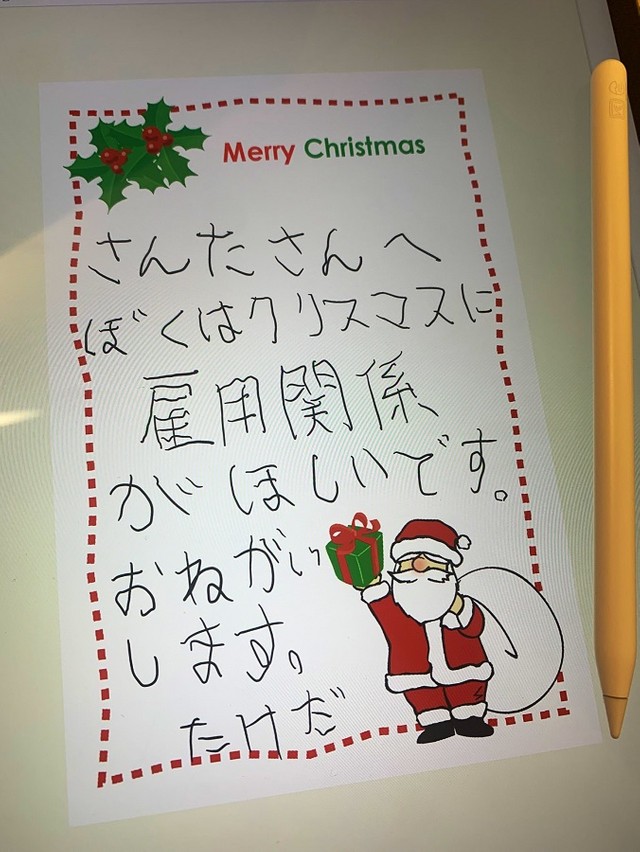 Merry Christmas
さんたさんへ
ぼくはクリスマスに
雇用関係
がほしいです。
おねがい
します。
たけだ